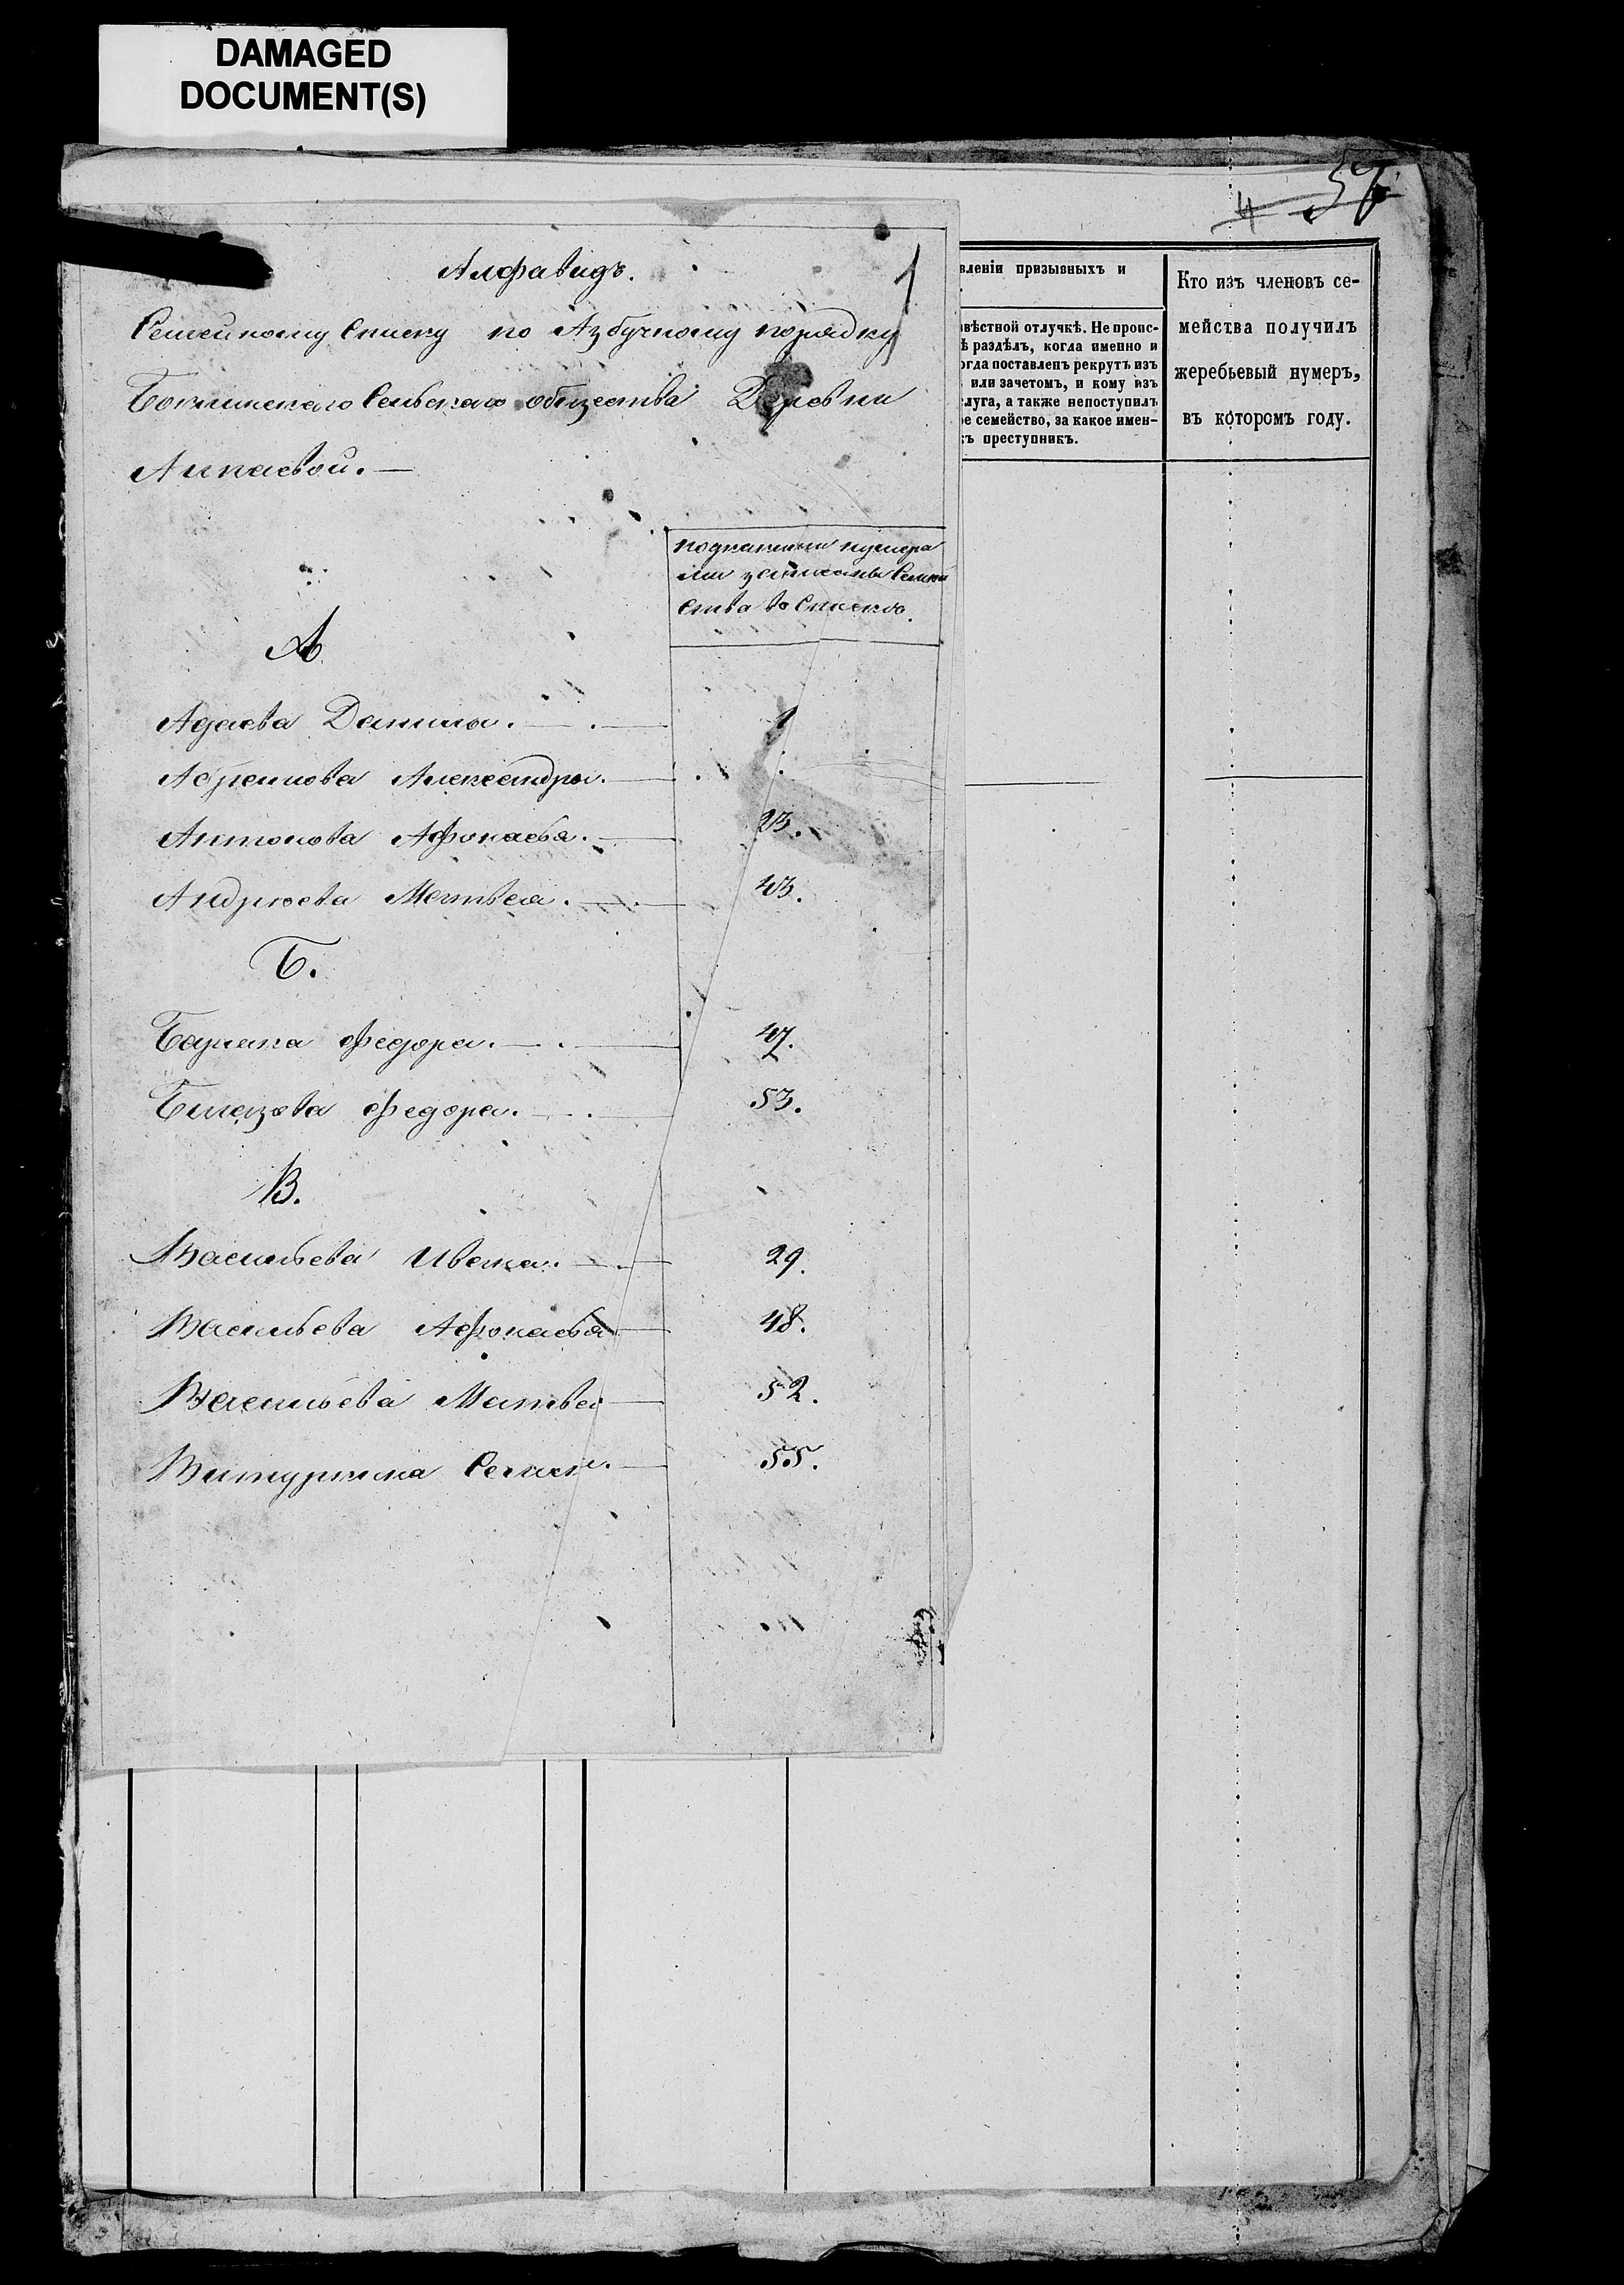 DAMAGED
DOCUMENT(S)
57
4
1
Алфавидъ.
Семейному Списку по Азбучному порядку
Сельскаго общества Деревни
подкакими нумера
ми записаны Семей
ства въ Списке.
А
Адаева Данила. 1
Абрамова Александра.
Антонова Афонасья. 23.
Андреева Матвея. 43.
Б.
Федора. 47.
Федора. 53.
В.
Васильева Ивана. 29.
Васильева Афонасья 48.
Васильева Матвея 52.
Семена. 55.
вленіи призывныхъ и
звѣстной отлучкѣ. Не пропс-
ѣ раздѣлъ, когда именно и
огда поставленъ рекрутъ изъ
или зачетомъ, и кому изъ
луга, а также непоступилъ
ое семейство, за какое имен-
къ преступникъ.
Кто изъ членовъ се-
мейства получилъ
жеребьевый нумеръ,
въ которомъ году.